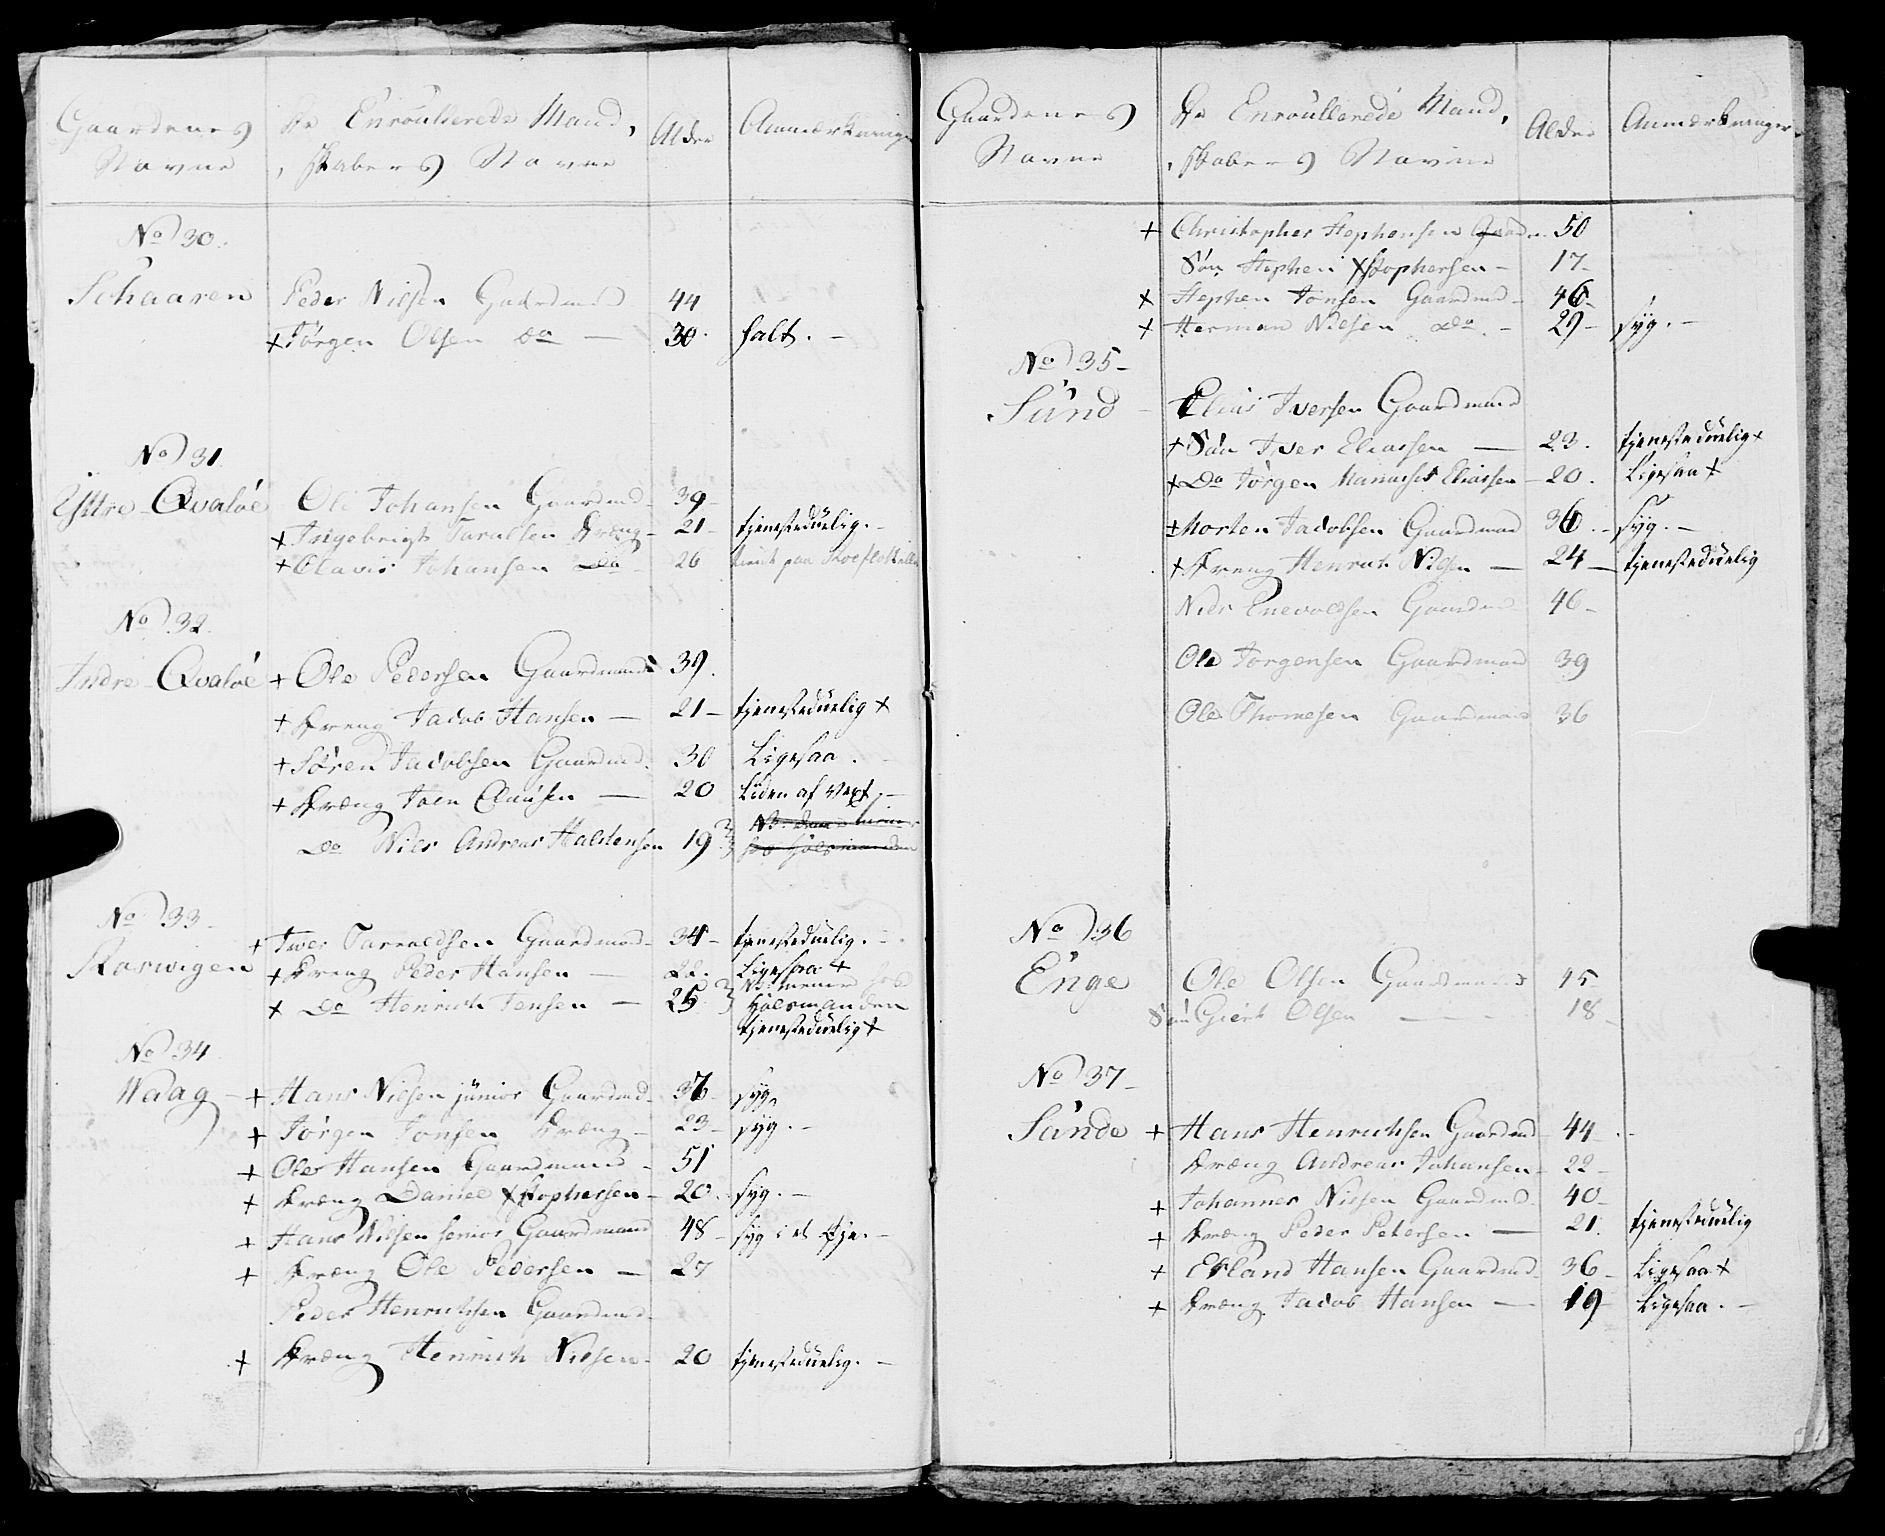 Gaardenes Navne | De Enroullerede Mand, skabers Navne | Alder | Anmærkninger
No 30.
Schaaren | Peder Nielsen Gaardmand | 44
+ Jørgen Olsen do — | 30. | halt. —
No 31
Yttre Qvaløe | Ole Johansen Gaardmd | 39 –
+ Ingebrigt Dræng – | 21 – | tjenestedüelig. –
+ Olavis Johansen do | 26 | paa
No 32.
Indre Qvaløe | + Ole Pedersen Gaardmand | 39.
+ Dreng Jacob Hansen — | 21 – | tjenestedüelig +
+ Søren Jacobsen Gaardmd. | 30 | Ligesaa.
+ Dræng Joen Clausen — | 20 | Liden af Vext. –
do Nils Andreas Haldensen | 19
No 33
+ Iver Gaardmd – | 34 – | tjenestedüelig. –
+ Dreng Peder Hansen — | 22. | Ligesaa +
+ do Henrich Jensen — | 25 | NB. tiener hos
Qvalsmanden
tjenestedüelig +
No 34
Waag – | + Hans Nielsen junior Gaardmd – | 36 – | syg
+ Jørgen Jonsen Dræng – | 23 – | syg. –
+ Ole Hansen Gaardmand – | 51
+ Dræng Daniel Xstophersen – | 20. | syg. –
+ Hans Nilsen senior Gaardmand | 48 – | syg i et Øje. –
+ Dræng Ole Pedersen — | 27
Peder Henrichsen Gaardmd –
+ Dræng Henrich Nielsen – | 20 | tjenestedüelig. –
Gaardenes Navne | De Enroullerede Mand, skabers Navne | Alder | Anmærkninger
+ Christopher Stephensen Gaardm. | 50
Søn Stephen Xstophersen – | 17 –
+ Stephen Jonsen Gaardmd – | 46 –
+ Herman Nielsen do. – | 29 – | syg. –
No 35 –
Sünd – | Elias Iversen Gaardmand
+ Søn Iver Eliassen — | 23. | tjenestedüelig +
+ Do Jørgen Manasses Eliassen – | 20. | Ligesaa +
+ Morten Jacobsen Gaardmand | 36. – | syg. –
+ Dreng Henrich Nilsen — | 24 – | tjenestedüelig
Nils Enevoldsen Gaardmd – | 46 –
Ole Jørgensen Gaardmand | 39
Ole Thomesen Gaardmand | 36
No 36
Enge | Ole Olsen Gaardmand | 45 –
Søn Giert Olsen — — — | 18 –
No 37 –
Sünde | + Hans Henrichsen Gaardmd | 44 –
Dræng Andreas Johansen – | 22 –
+ Johannes Nielsen Gaardmd – | 40 –
+ Dræng Peder Petersen — | 21. | tjenestedüelig
+ Erland Hansen Gaardmd – | 36 – | Ligesaa +
+ Dræng Jacob Hansen — | 19 | Ligesaa. –